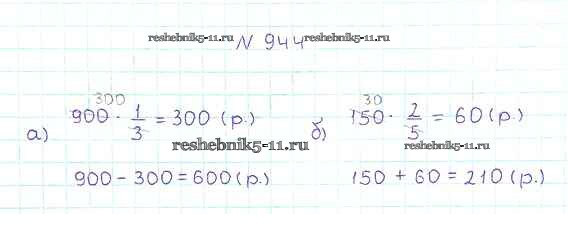 reshebnik5-11.ru N 944 reshebnik5-11.ru
300 30
а) 900 · 1/3 = 300 (р.) б) 150 · 2/5 = 60 (р.)
reshebnik5-11.ru reshebnik5-11.ru
900 - 300 = 600 (р.) 150 + 60 = 210 (р.)